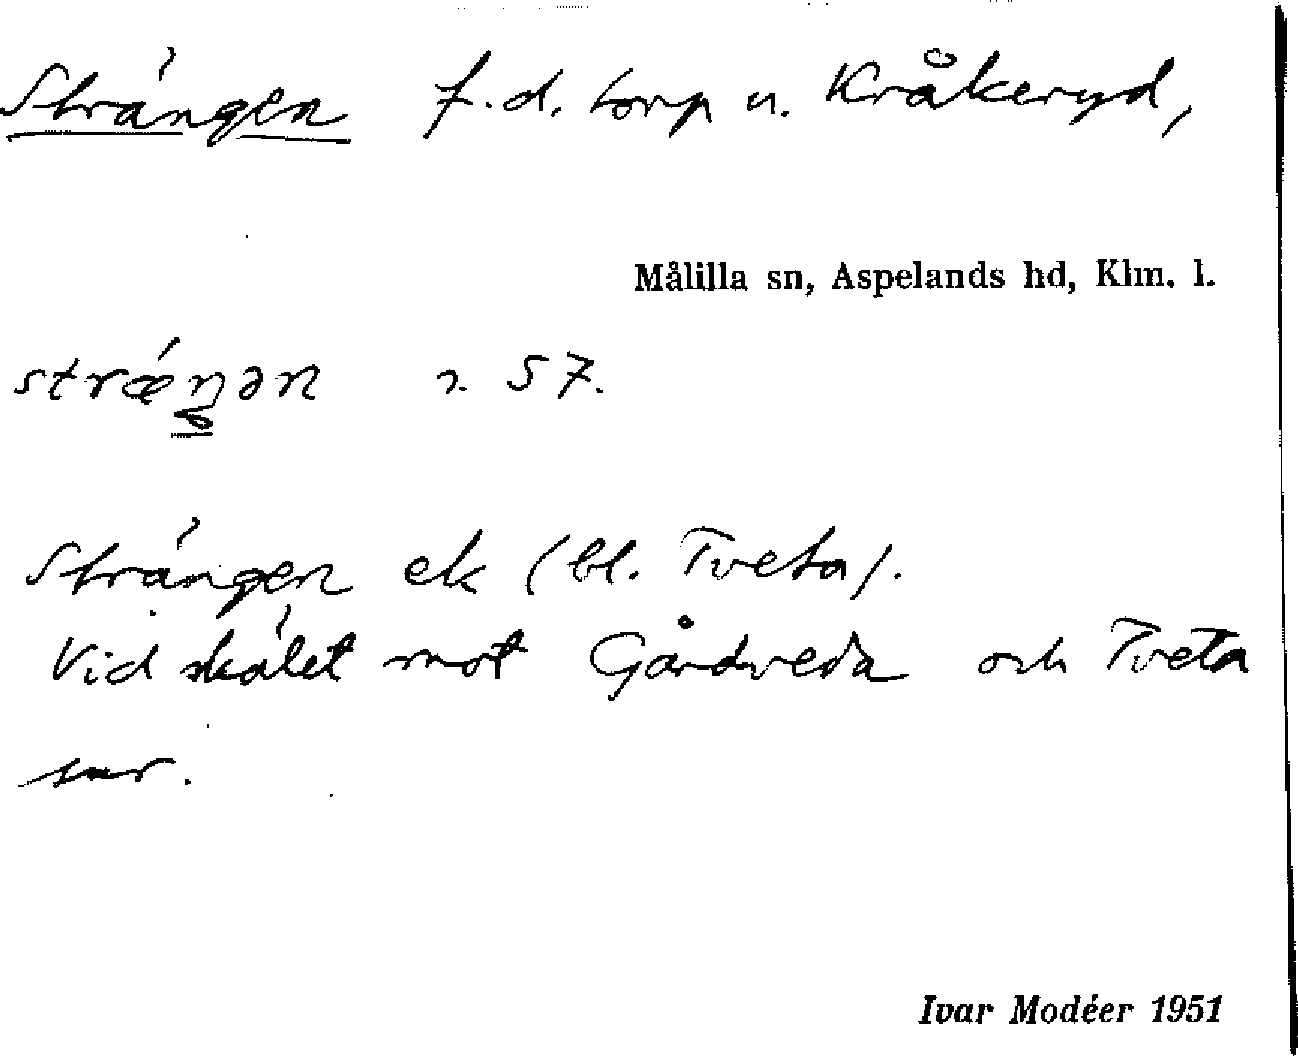 Strängen f.d. torp u. Kråkeryd,
Målilla sn, Aspelands hd, Klm. l.
strǽŋən 57.
Strängen ek (bl. Tveta).
Vid skälet mot Gårdveda och Tveta
snr.
Ivar Modéer 1951